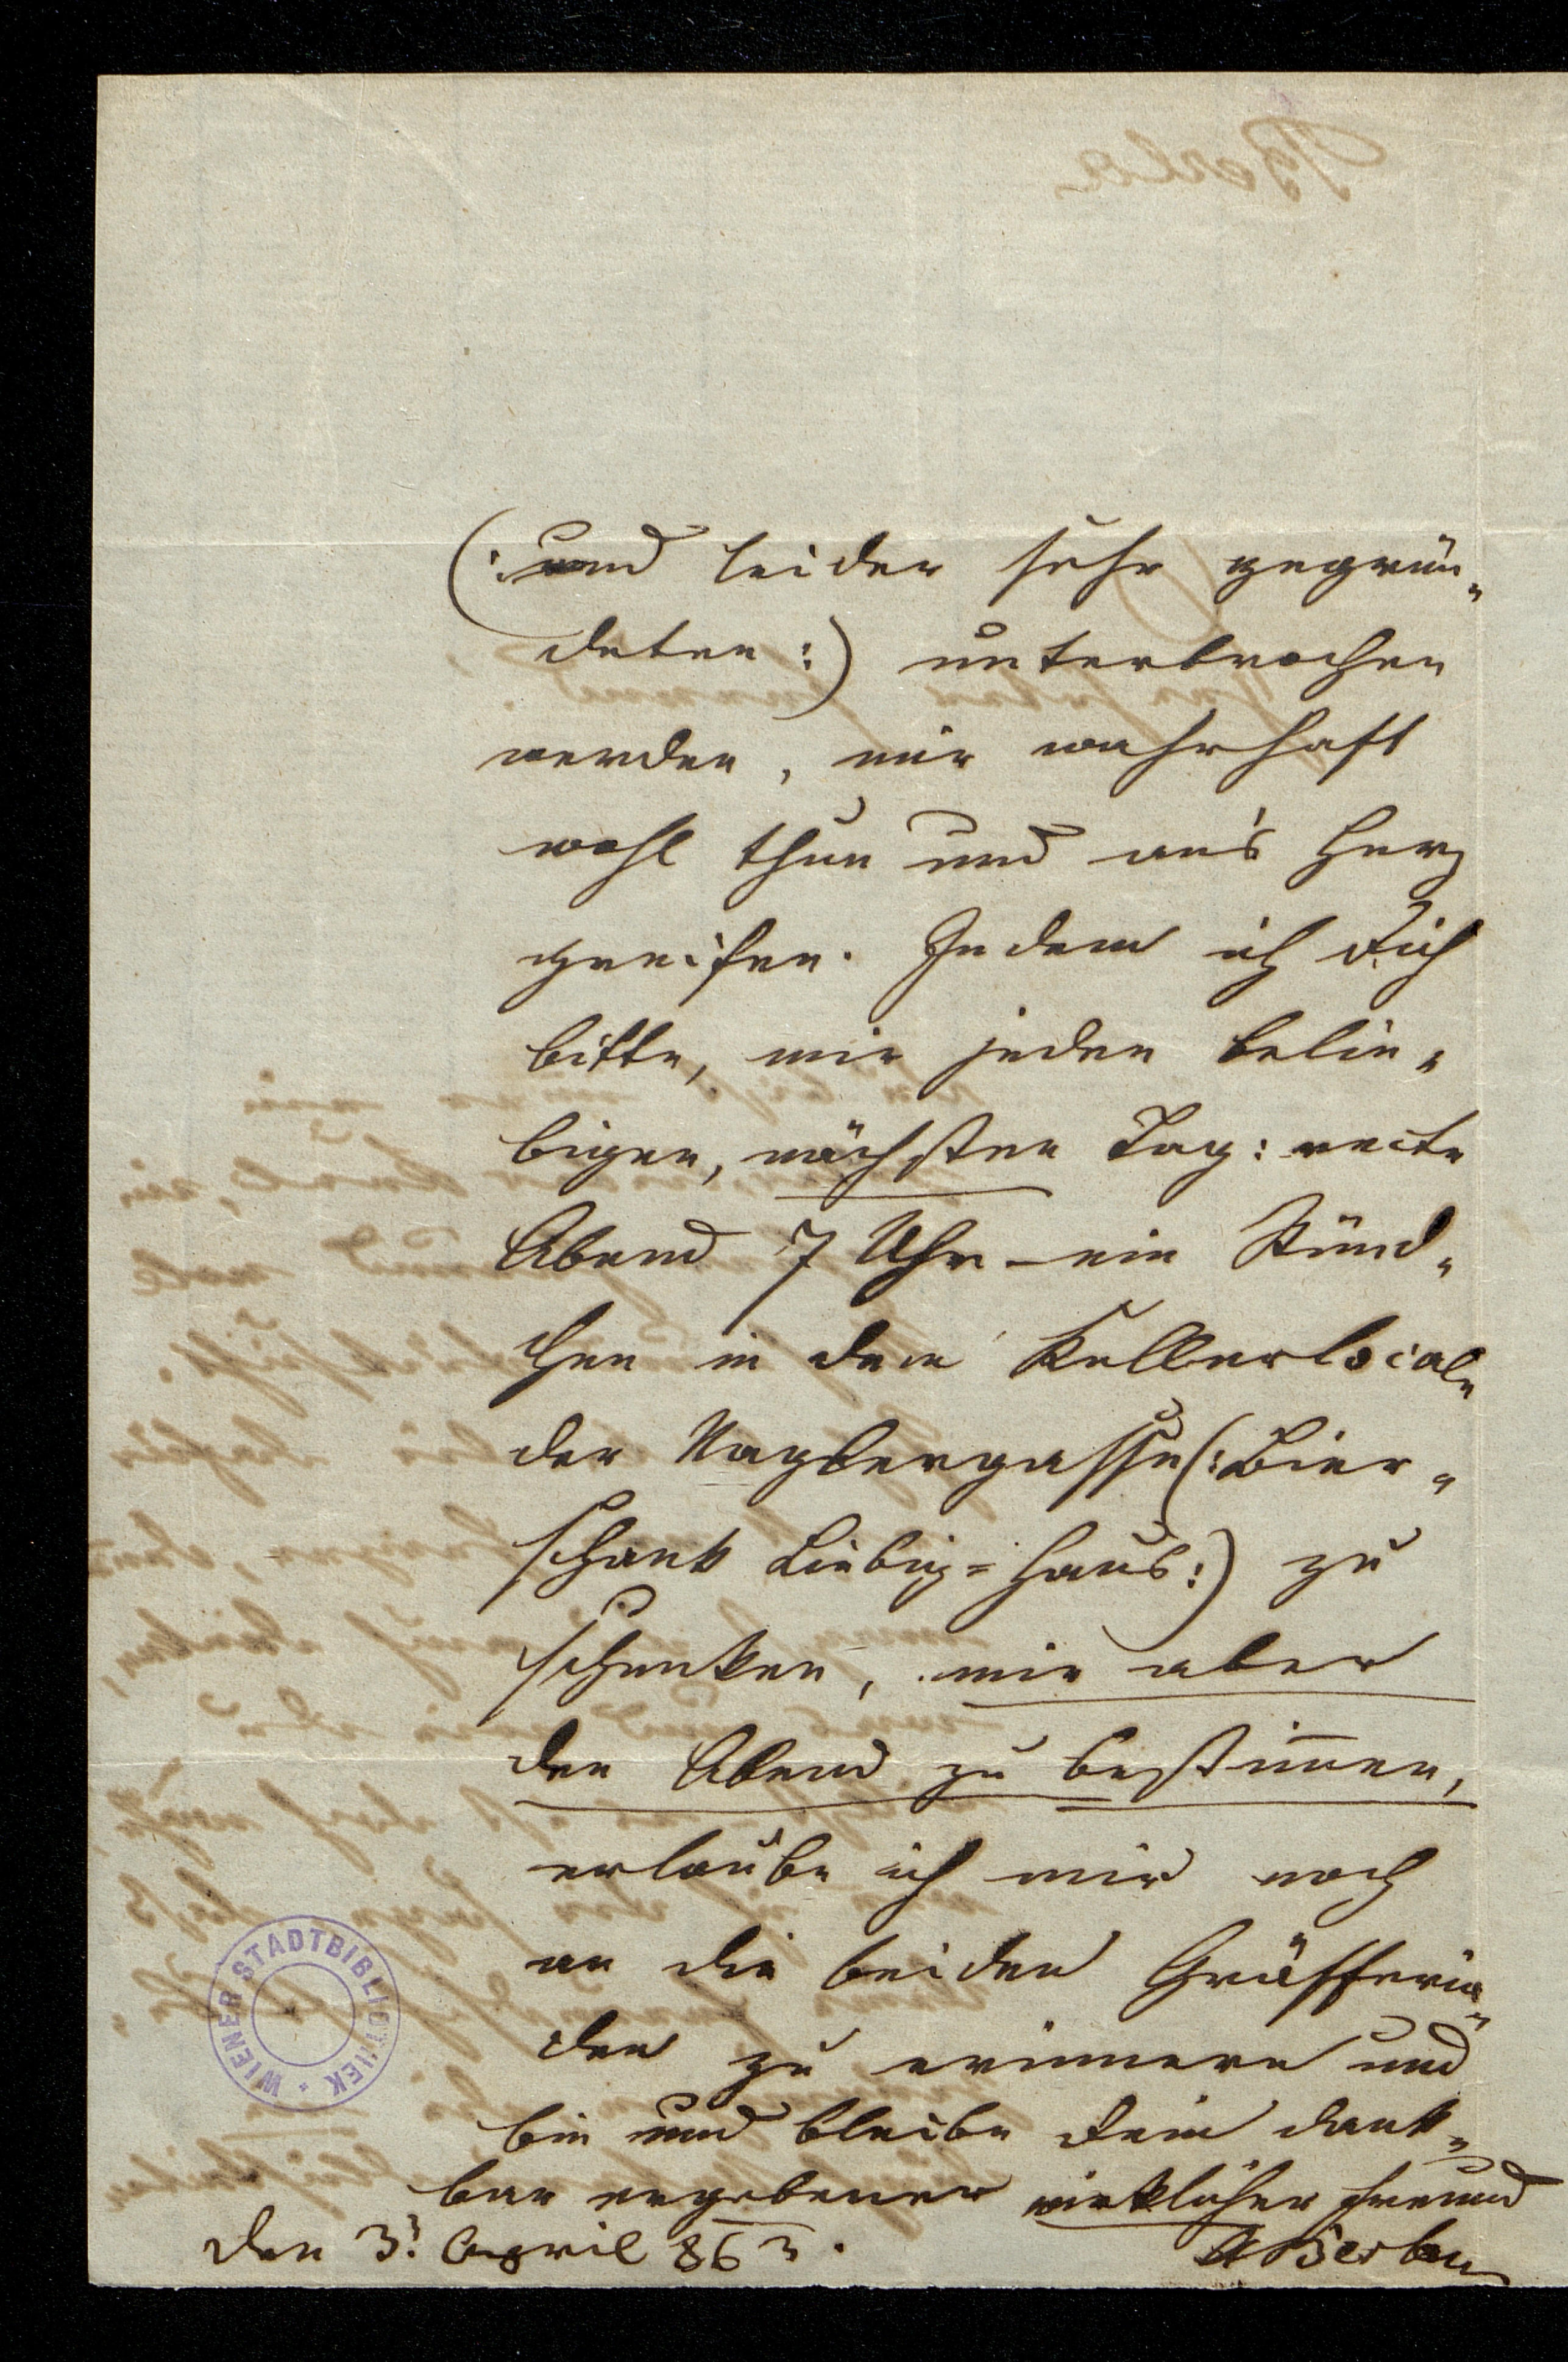 (: und leider sehr gegrün„
deten :) unterbrochen
werden, mir wahrhaft
wohl thun und an's Herz
greifen. Indem ich Dich
bitte, mir jeden belie„
bigen, nächsten Tag: recte
Abend 7 Uhr – ein Stünd„
chen in dem Kellerlocale
der Naglergasse (: Bier„
schank Liebig=Haus :) zu
schenken, mir aber
den Abend zu bestimen,
erlaube ich mir noch
an die beiden Gräfferia„
den zu erinnern und
bin und bleibe Dein dank„
bar ergebener wirklicher Freund
den 3. April 863.
Berla
WIENER STADTBIBLIOTHEK